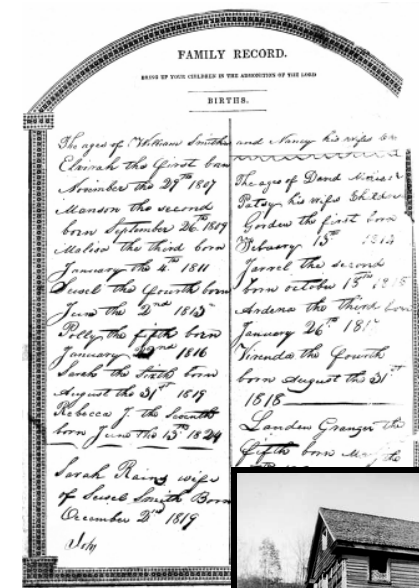 FAMILY RECORD.
BRING UP YOUR CHILDREN IN THE ADMONITION OF THE LORD
BIRTHS.
The ages of William Smiths and Nancy his wifes
Elvirah the first born
November the 29th 1807
Manson the second
born September 26th 1809
Malisa the third born
January the 4th 1811
the fourth born
June the 2nd 1813
Polly the fifth born
January 1816
Sarah the Sixth born
August the 31st 1819
Rebecca J. the Seventh
born June the 13th 1824
Sarah Rains wife
of Smith Born
December 2d 1819
The ages of David
Patsy his wifes Children
Gorden the first born
15th 1814
Jarrel the second
born october 15th
Ardena the third born
January 26th 181
the fourth
born August the 31st
1818
Landen Granger the
fifth born the